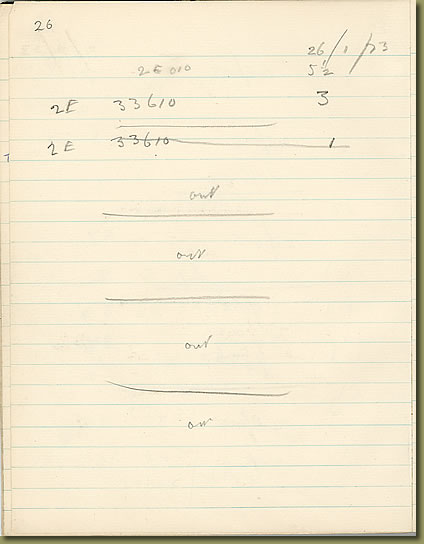 26
26/1/23
2E 010
5½
2E 33610 3
2E 33610 1
out
out
out